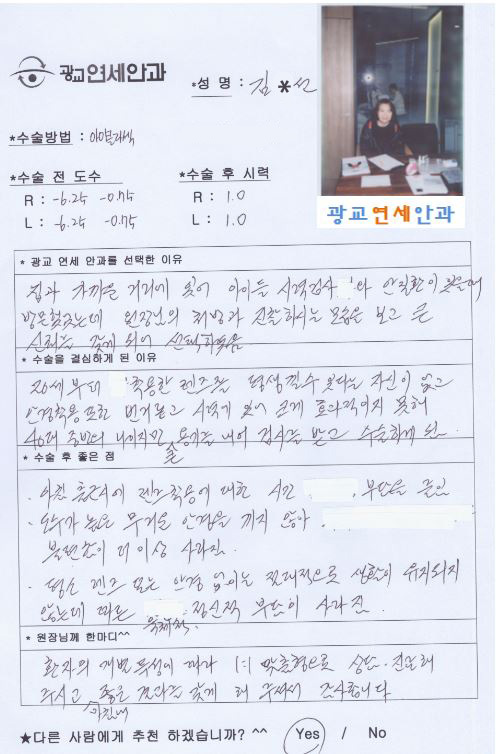 광교연세안과
*성 명 : 김*선
*수술방법 : 아이랩라섹
*수술 전 도수
*수술 후 시력
R : -6.25 -0.75
R : 1.0
L : -6.25 -0.75
L : 1.0
광교연세안과
* 광교 연세 안과를 선택한 이유
집과 가까운 거리에 있어 아이들 시력검사 와 안질환이 있을때
방문했었는데 원장님의 처방과 진찰하시는 모습을 보고 큰
신뢰를 갖게 되어 선택하였음
* 수술을 결심하게 된 이유
20세부터 착용한 렌즈를 평생 낄수 있다는 자신이 없고
안경착용 또한 번거롭고 시력에 있어 크게 효과적이지 못해
40대 중반의 나이지만 용기를 내어 검사를 받고 수술하게 됨.
* 수술 후 좋은 점
· 아침 출근시에 렌즈착용에 대한 시간 , 부담을 줄임
· 도수가 높은 무거운 안경을 끼지 않아
불편함이 더 이상 사라짐.
· 평소 렌즈 또는 안경 없이는 전체적으로 생활이 유지되지
않는데 따른 육체적, 정신적 부담이 사라짐.
* 원장님께 한마디^^
환자의 개별 특성에 따라 1:1 맞춤형으로 상담·진찰해
주시고 좋은 결과를 갖게 해 주셔서 감사합니다
★다른 사람에게 추천 하겠습니까? ^^ Yes / No